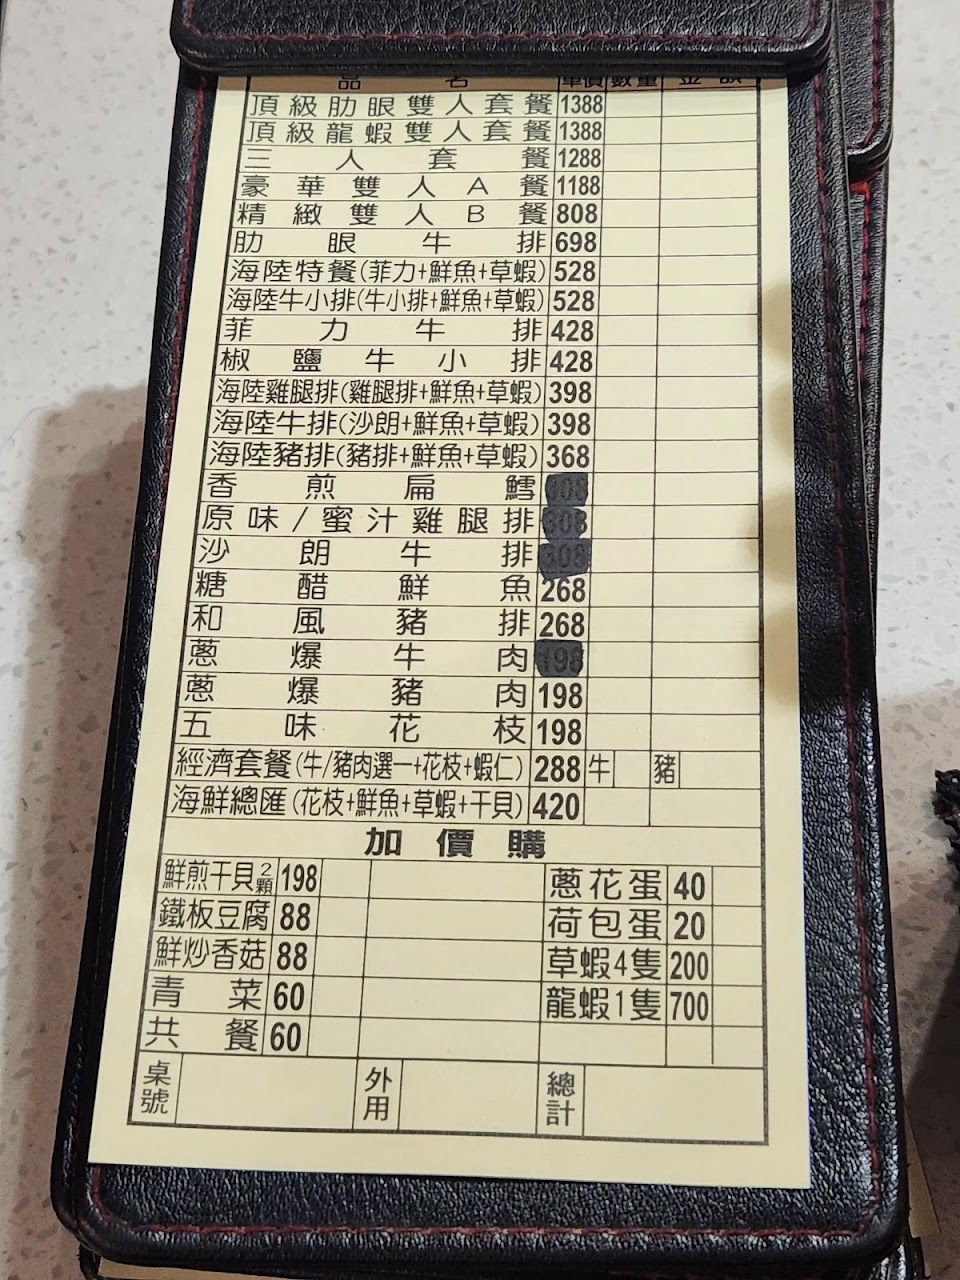 品名 單價 數量 金額
頂級肋眼雙人套餐 1388
頂級龍蝦雙人套餐 1388
三人套餐 1288
豪華雙人A餐 1188
精緻雙人B餐 808
肋眼牛排 698
海陸特餐(菲力+鮮魚+草蝦) 528
海陸牛小排(牛小排+鮮魚+草蝦) 528
菲力牛排 428
椒鹽牛小排 428
海陸雞腿排(雞腿排+鮮魚+草蝦) 398
海陸牛排(沙朗+鮮魚+草蝦) 398
海陸豬排(豬排+鮮魚+草蝦) 368
香煎扁鱈 308
原味/蜜汁雞腿排 308
沙朗牛排 308
糖醋鮮魚 268
和風豬排 268
蔥爆牛肉 198
蔥爆豬肉 198
五味花枝 198
經濟套餐(牛/豬肉選一+花枝+蝦仁) 288 牛 豬
海鮮總匯(花枝+鮮魚+草蝦+干貝) 420
加價購
鮮煎干貝2顆 198 蔥花蛋 40
鐵板豆腐 88 荷包蛋 20
鮮炒香菇 88 草蝦4隻 200
青菜 60 龍蝦1隻 700
共餐 60
桌號 外用 總計